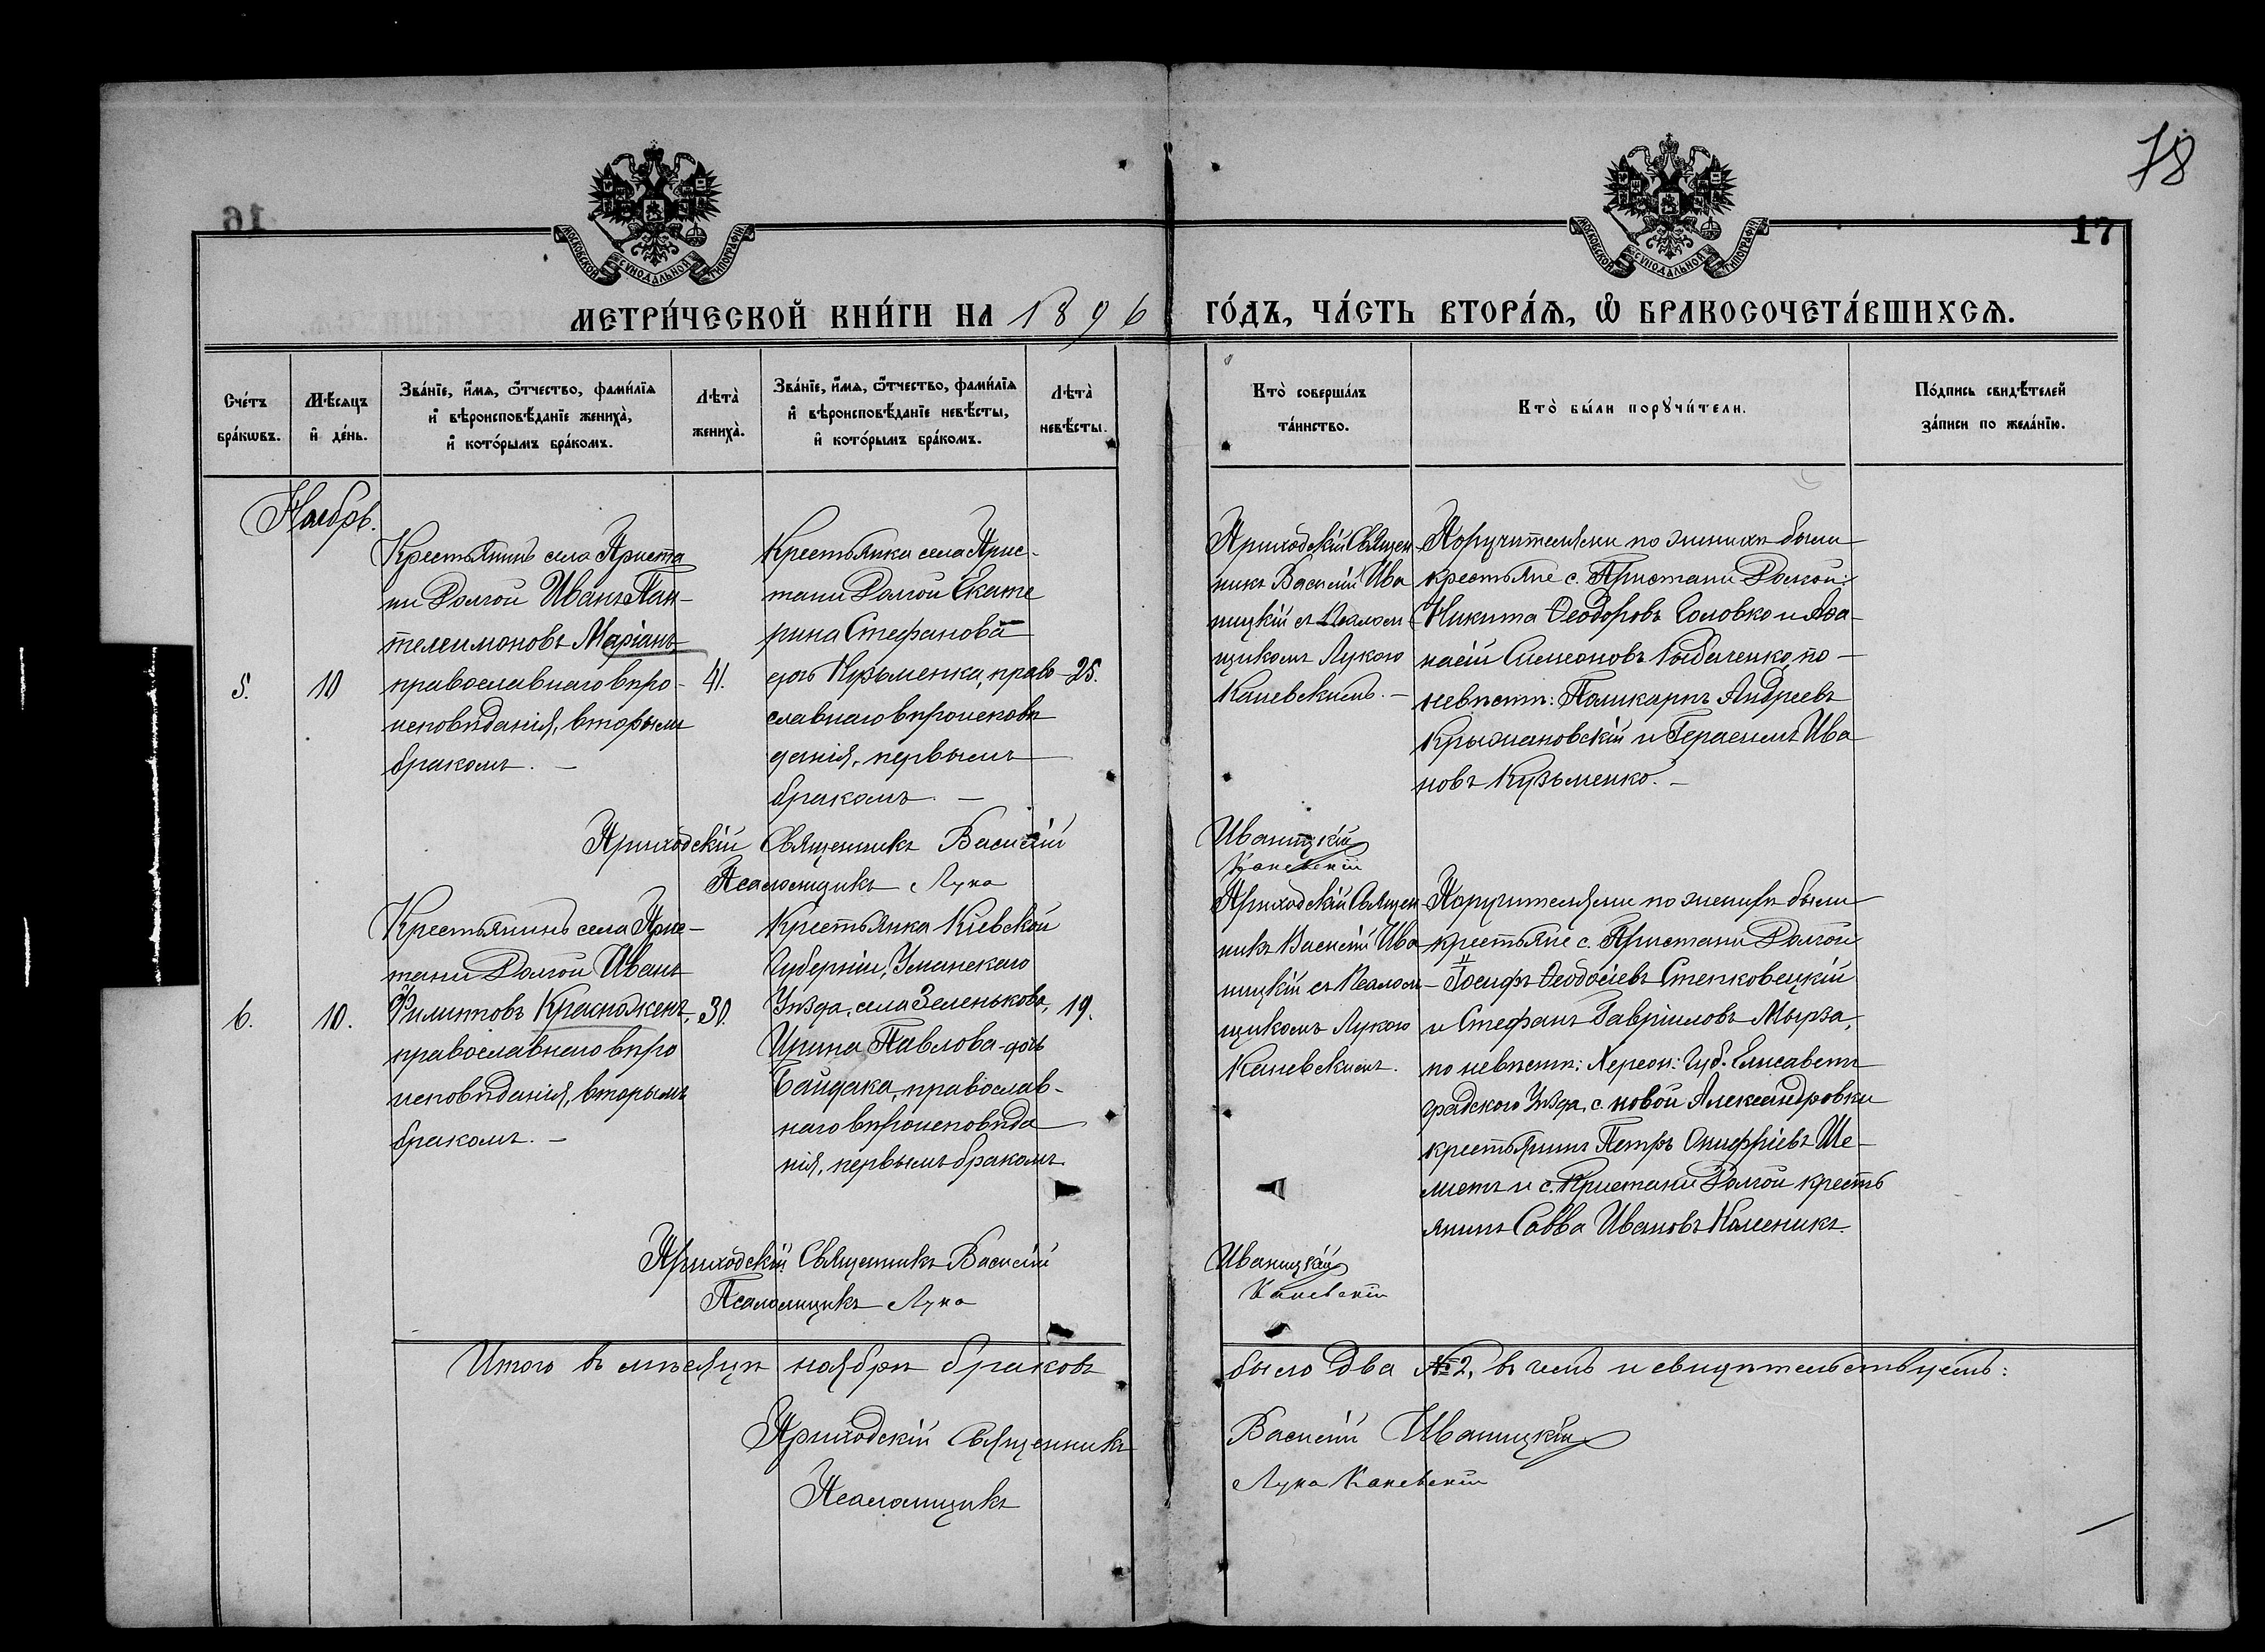 78
16
17
МОСКОВСКОЙ СѴНОДАЛЬНОЙ ТИПОГРАФІИ
МОСКОВСКОЙ СѴНОДАЛЬНОЙ ТИПОГРАФІИ
МЕТРИ́ЧЕСКОЙ КНИ́ГИ НА 1896 ГО́ДЪ, ЧА́СТЬ ВТОРА́Ѧ, Ѽ БРАКОСОЧЕТА́ВШИХСѦ.
Сче́тъ
бра́кѡвъ.
Мѣ́сяцъ
и҆ де́нь.
Зва́нїе, и҆́мѧ, ѻ҆́тчество, фами́лїѧ
и҆ вѣроисповѣ́данїе жениха̀,
и҆ кото́рымъ бра́комъ.
Лѣта̀
жениха̀.
Зва́нїе, и҆́мѧ, ѻ҆́тчество, фами́лїѧ
и҆ вѣроисповѣ́данїе невѣ́сты,
и҆ кото́рымъ бра́комъ.
Лѣта̀
невѣ́сты.
Кто̀ соверша́лъ
та́инство.
Кто̀ бы́ли порꙋчи́тели.
По́дпись свидѣ́телей
за́писи по жела́нїю.
Ноябрь.
5.
10
Крестьянинъ села Приста
ни Долгой Иванъ Пан-
телеимоновъ Маріанъ
православнаго вѣро-
исповѣданія, вторымъ
бракомъ. —
41.
Крестьянка села Прис-
тани Долгой Екате
рина Стефанова
дочь Кузьменка, право
славнаго вѣроисповѣ
данія, первымъ
бракомъ. —
25.
Приходскій Священ-
никъ Василій Ива
ницкій съ Псалом-
щикомъ Лукою
Каневскимъ. —
Поручителями по женихѣ были
крестьяне с. Пристани Долгой:
Никита Ѳеодоровъ Головко и Аѳа-
насій Симеоновъ Рыбаченко, по-
невѣстѣ: Поликарпъ Андреевъ
Крыжановскій и Герасимъ Ива
новъ Кузьменко. —
Приходскій Священникъ Василій Иваницкій
Псаломщикъ Лука Каневскій
6.
10.
Крестьянинъ села Прис-
тани Долгой Иванъ
Филиптовъ Красноженъ,
православнаго вѣро
исповѣданія, вторымъ
бракомъ. —
30.
Крестьянка Кіевской
Губерніи, Уманскаго
Уѣзда, села Зеленькова,
Ирина Павлова-дочь
Байдака, православ-
наго вѣроисповѣда
нія, первымъ бракомъ.
19.
Приходскій Священ-
никъ Василій Ива
ницкій съ Псалом-
щикомъ Лукою
Каневскимъ.
Поручителями по женихѣ были
крестьяне с. Пристани Долгой
Іосифъ Ѳеодосіевъ Стенковецкій
и Стефанъ Гавріиловъ Мырза,
по невѣстѣ: Херсон: Губ. Елисавет
градскаго Уѣзда, с. новой Александровки
крестьянинъ Петръ Онифріевъ Ше-
метъ и с. Пристани Долгой кресть
янинъ Савва Ивановъ Колесникъ.
Приходскій Священникъ Василій Иваницкій
Псаломщикъ Лука Каневскій
Итого въ мѣсяцѣ ноябрѣ браковъ было два № 2, въ чемъ и свидѣтельствуемъ:
Приходскій Священникъ Василій Иваницкій
Псаломщикъ Лука Каневскій